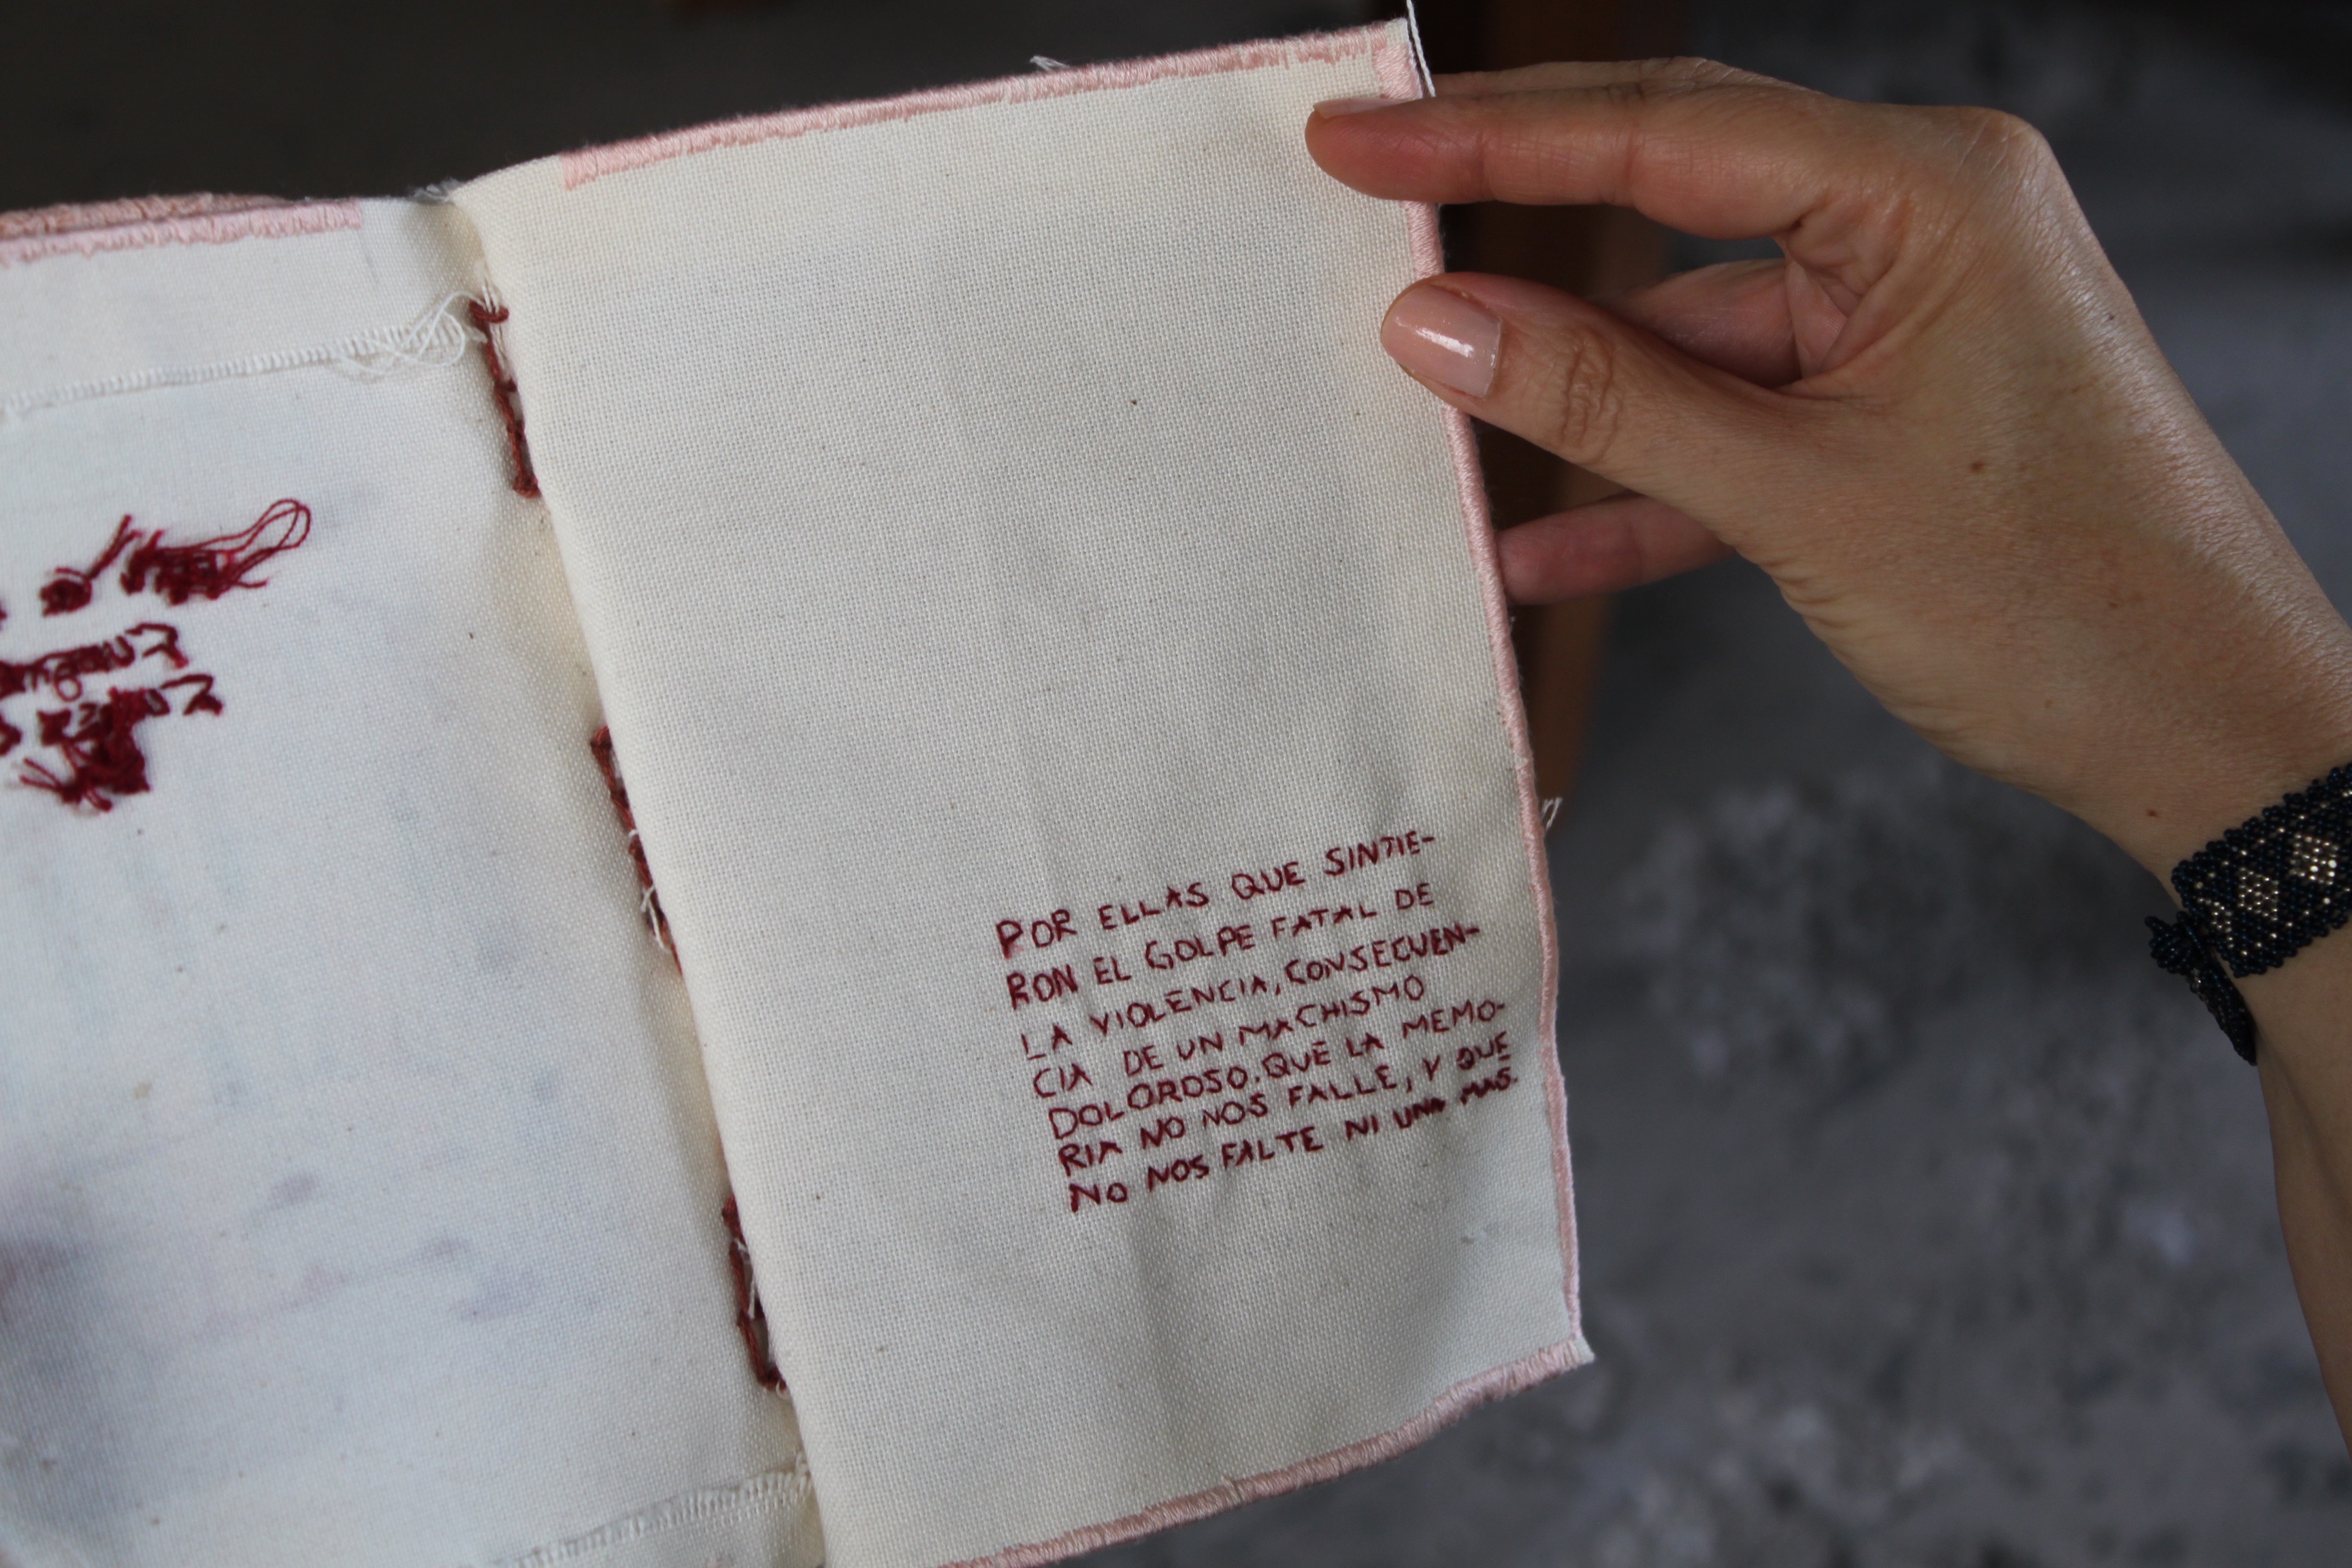 POR ELLAS QUE SINTIE-
RON EL GOLPE FATAL DE
LA VIOLENCIA, CONSECUEN-
CIA DE UN MACHISMO
DOLOROSO. QUE LA MEMO-
RIA NO NOS FALLE, Y QUE
NO NOS FALTE NI UNA MAS.